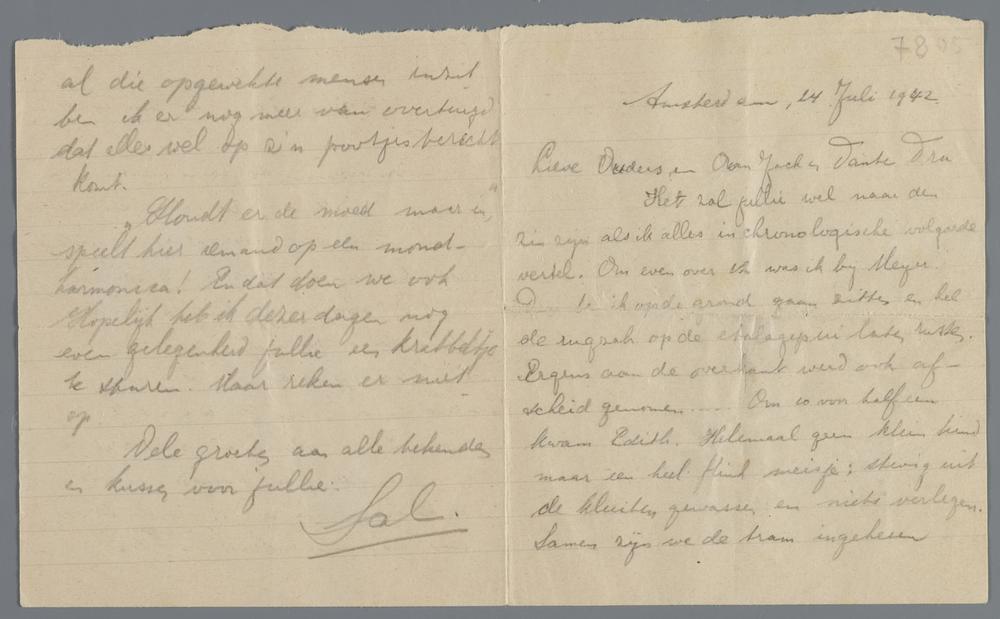 7805
Amsterdam, 24 Juli 1942
Lieve Ouders, en Oom Jack en Tante Dra
Het zal jullie wel naar den
zin zijn als ik alles in chronologische volgorde
vertel. Om even over was ik by Meyer.
ik op de grond gaan zitten en heb
de rugzak op de laten rusten.
Ergens aan de overkant werd ook af-
scheid genomen..... Om 10 voor half een
kwam Edith. Helemaal geen klein kind
maar een heel flink meisje; stevig uit
de kluiten gewassen en niets verlegen.
Samen zijn we de tram ingeheven
al die opgewekte mensen inzit
ben ik er nog meer van overtuigd
dat alles wel op z'n pootjes terecht
komt.
„Houdt er de moed maar in,"
speelt hier iemand op een mond-
harmonica! En dat doen we ook
Hopelijk heb ik dezer dagen nog
even gelegenheid jullie een krabbeltje
te sturen. Maar reken er niet
op
Vele groeten aan alle bekenden
en kussen voor jullie.
Sal.